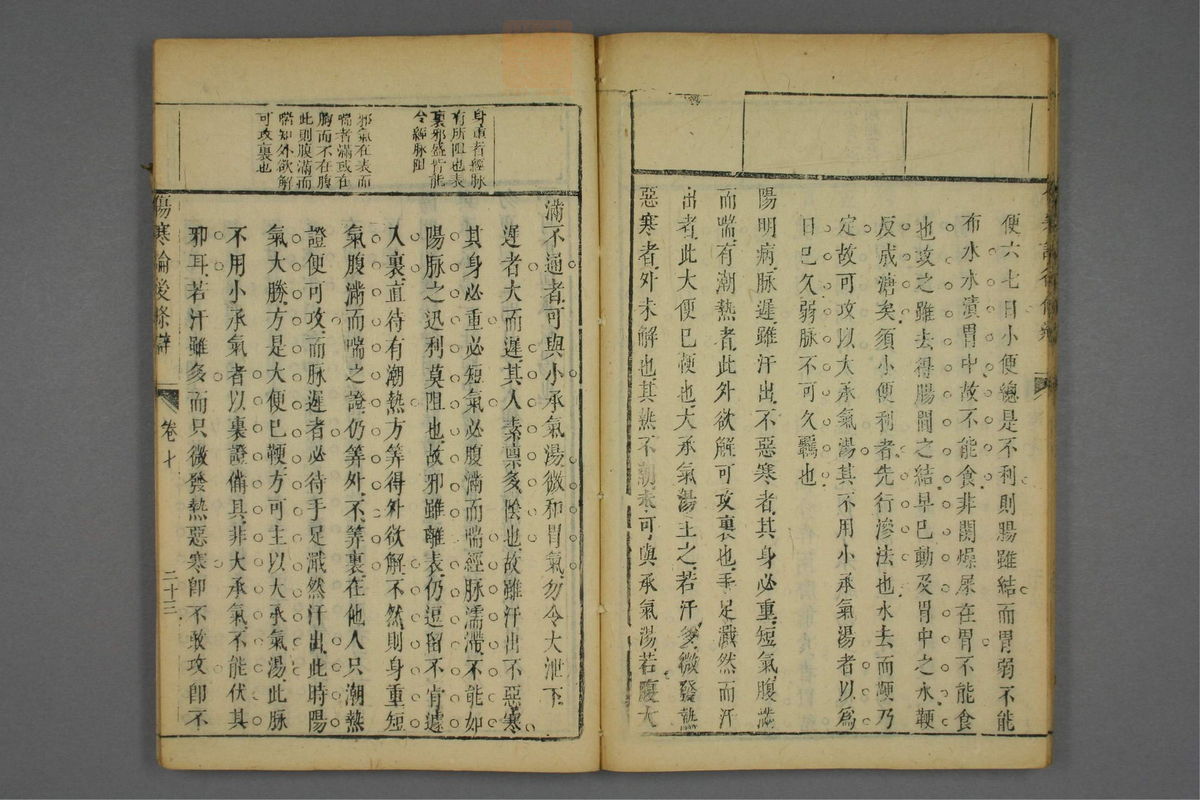 便六七日小便總是不利則腸雖結而胃弱不能
布水水漬胃中故不能食非關燥屎在胃不能食
也攻之雖去得腸間之結早已動及胃中之水鞕
反成溏矣須小便利者先行滲法也水去而鞕乃
定故可攻以大承氣湯其不用小承氣湯者以爲
日已久弱脈不可久羈也
陽明病脈遲雖汗出不惡寒者其身必重短氣腹滿
而喘有潮熱者此外欲解可攻裏也手足濈然而汗
出者此大便已鞕也大承氣湯主之若汗多微發熱
惡寒者外未解也其熱不潮未可與承氣湯若腹大
身重者經脈
有所阻也表
裏邪盛皆能
令經脈阻
邪氣在表而
喘者滿或在
胸而不在腹
此則腹滿而
喘知外欲解
可攻裏也
滿不通者可與小承氣湯微和胃氣勿令大泄下
遲者大而遲其人素禀多陰也故雖汗出不惡寒
其身必重必短氣必腹滿而喘經脈濡滯不能如
陽脈之迅利莫阻也故邪雖離表仍逗留不肯遽
入裏直待有潮熱方筭得外欲解不然則身重短
氣腹滿而喘之證仍筭外不筭裏在他人只潮熱
證便可攻而脈遲者必待手足濈然汗出此時陽
氣大勝方是大便已鞕方可主以大承氣湯此脈
不用小承氣者以裏證備具非大承氣不能伏其
邪耳若汗雖多而只微發熱惡寒卽不敢攻卽不
傷寒論後條辯
卷十
二十三